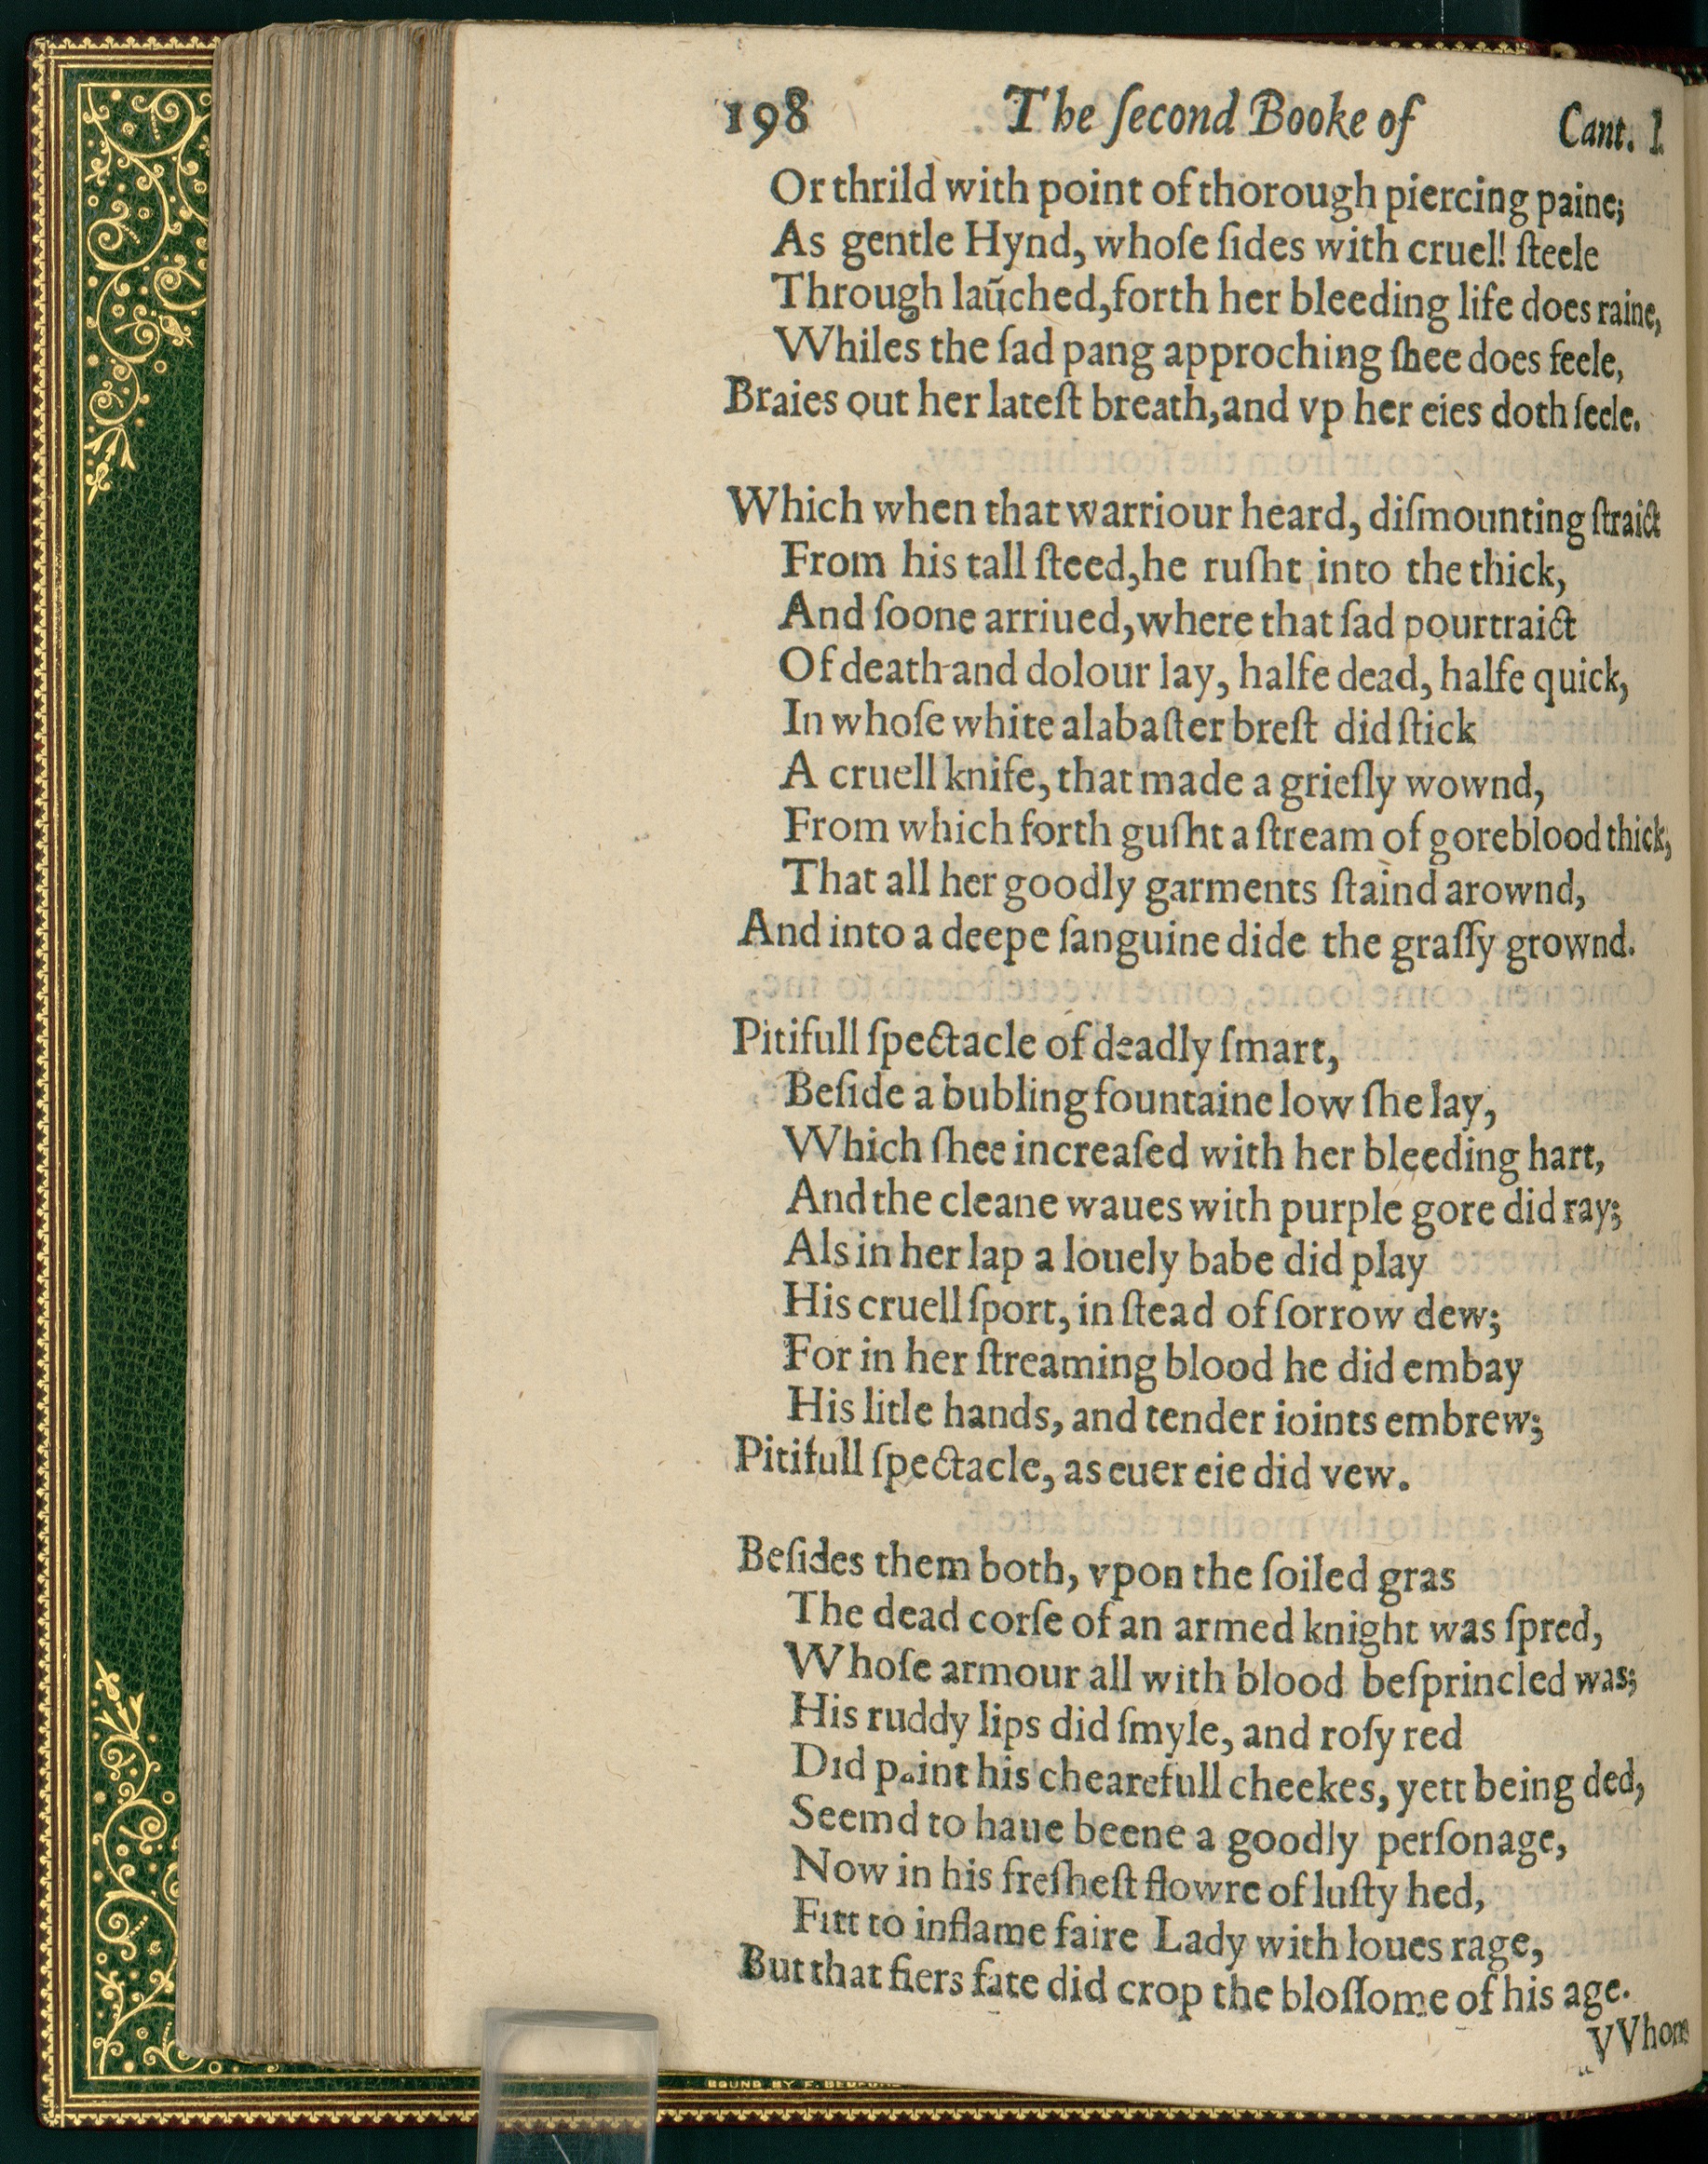 198 The ſecond Booke of Cant. I.
Or thrild with point of thorough piercing paine;
As gentle Hynd, whoſe ſides with cruell ſteele
Through laũched, forth her bleeding life does raine,
Whiles the ſad pang approching ſhee does feele,
Braies out her lateſt breath, and vp her eies doth ſeele.
Which when that warriour heard, diſmounting ſtraict
From his tall ſteed, he ruſht into the thick,
And ſoone arriued, where that ſad pourtraict
Of death and dolour lay, halfe dead, halfe quick,
In whoſe white alabaſter breſt did ſtick
A cruell knife, that made a grieſly wownd,
From which forth guſht a ſtream of goreblood thick,
That all her goodly garments ſtaind arownd,
And into a deepe ſanguine dide the graſſy grownd.
Pitifull ſpectacle of deadly ſmart,
Beſide a bubling fountaine low ſhe lay,
Which ſhee increaſed with her bleeding hart,
And the cleane waues with purple gore did ray;
Als in her lap a louely babe did play
His cruell ſport, in ſtead of ſorrow dew;
For in her ſtreaming blood he did embay
His litle hands, and tender ioints embrew;
Pitifull ſpectacle, as euer eie did vew.
Beſides them both, vpon the ſoiled gras
The dead corſe of an armed knight was ſpred,
Whoſe armour all with blood beſprincled was;
His ruddy lips did ſmyle, and roſy red
Did paint his chearefull cheekes, yett being ded,
Seemd to haue beene a goodly perſonage,
Now in his freſheſt flowre of luſty hed,
Fitt to inflame faire Lady with loues rage,
But that fiers fate did crop the bloſſome of his age.
VVhom
BOUND BY F.